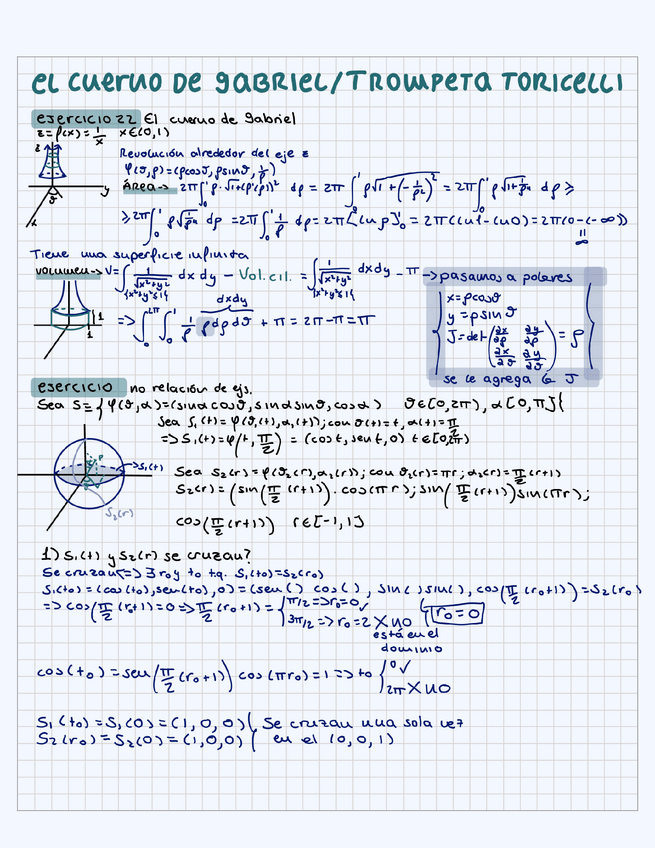 El cuerno de gabriel/Trompeta Toricelli
ejercicio 22 El cuerno de Gabriel
z = f(x) = 1/x x∈(0,1)
Revolución alrededor del eje z
φ(ϑ,ρ)=(ρcosϑ, ρsinϑ, 1/ρ)
Área-> 2π∫₀¹ρ·√1+(f'(ρ))² dρ = 2π∫₀¹ ρ√1+(-1/ρ²)² = 2π∫₀¹ ρ√1+1/ρ⁴ dρ ≥
≥ 2π∫₀¹ ρ√1/ρ⁴ dρ = 2π∫₀¹ 1/ρ dρ = 2π[ln ρ]₀¹ = 2π(ln1-ln0)=2π(0-(-∞))
=
∞
Tiene una superficie infinita
volumen-> V=∫{x²+y²≤1} 1/√x²+y² dx dy - Vol.cil. = ∫{x²+y²≤1} 1/√x²+y² dxdy - π -> pasamos a polares
dxdy
=> ∫₀²π ∫₀¹ 1/ρ ρdρdϑ + π = 2π-π=π
x=ρcosϑ
y=ρsinϑ
J=det(∂x/∂ρ ∂y/∂ρ ∂x/∂ϑ ∂y/∂ϑ) = ρ
se le agrega J
ejercicio no relación de ejs.
Sea S={φ(ϑ,α)=(sinαcosϑ, sinαsinϑ, cosα) ϑ∈[0,2π), α[0,π]{
Sea S₁(t)=φ(ϑ₁(t),α₁(t)); con ϑ(t)=t, α(t)=π/2
=> S₁(t)=φ(t,π/2) = (cost, sent, 0) t∈[0,2π)
S₁(t)
Sea S₂(r)=φ(ϑ₂(r),α₂(r)); con ϑ₂(r)=πr; α₂(r)=π/2(r+1)
S₂(r)=(sin(π/2(r+1))·cos(πr); sin(π/2(r+1))sin(πr);
S₂(r)
cos(π/2(r+1)) r∈[-1,1]
1) S₁(t) y S₂(r) se cruzan?
Se cruzan<=> ∃ r₀ y t₀ t.q. S₁(t₀)=S₂(r₀)
S₁(t₀)=(cos(t₀),sen(t₀),0)=(sen( ) cos( ), sin( )sin( ), cos(π/2(r₀+1))=S₂(r₀)
=> cos(π/2(r₀+1)=0 => π/2(r₀+1)= { π/2 => r₀=0 ✓ r₀=0
3π/2 => r₀=2 X no
está en el
dominio
cos(t₀)=sen(π/2(r₀+1)) cos(πr₀)=1 => t₀ { 0 ✓
2π X no
S₁(t₀)=S₁(0)=(1,0,0) { Se cruzan una sola vez
S₂(r₀)=S₂(0)=(1,0,0) { en el (0,0,1)